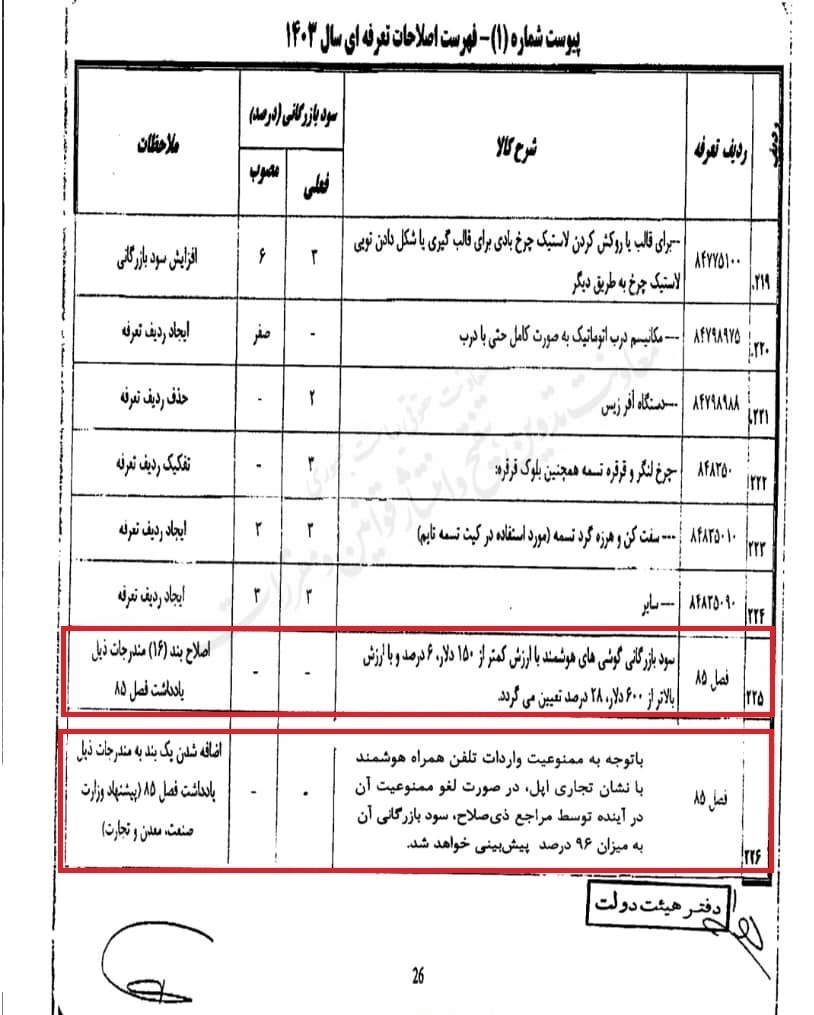 پیوست شماره (۱) - فهرست اصلاحات تعرفه ای سال ۱۴۰۳
ردیف
ردیف تعرفه
شرح کالا
سود بازرگانی (درصد)
فعلی
مصوب
ملاحظات
۲۱۹.
۸۴۷۷۵۱۰۰
--برای قالب یا روکش کردن لاستیک چرخ بادی برای قالب گیری یا شکل دادن تویی
لاستیک چرخ به طریق دیگر
۳
۶
افزایش سود بازرگانی
۲۲۰.
۸۴۷۹۸۹۷۵
--- مکانیسم درب اتوماتیک به صورت کامل حتی با درب
-
صفر
ایجاد ردیف تعرفه
۲۲۱.
۸۴۷۹۸۹۸۸
---دستگاه آفر زیس
۲
-
حذف ردیف تعرفه
۲۲۲
۸۴۸۳۵۰
-چرخ لنگر و قرقره تسمه همچنین بلوک قرقره:
۳
-
تفکیک ردیف تعرفه
۲۲۳
۸۴۸۳۵۰۱۰
--- سفت کن و هرزه گرد تسمه (مورد استفاده در کیت تسمه تایم)
۳
۲
ایجاد ردیف تعرفه
۲۲۴
۸۴۸۳۵۰۹۰
--- سایر
۳
۳
ایجاد ردیف تعرفه
۲۲۵
فصل ۸۵
سود بازرگانی گوشی های هوشمند با ارزش کمتر از ۱۵۰ دلار، ۶ درصد و با ارزش
بالاتر از ۶۰۰ دلار، ۲۸ درصد تعیین می گردد.
-
-
اصلاح بند (۱۶) مندرجات ذیل
یادداشت فصل ۸۵
۲۲۶
فصل ۸۵
باتوجه به ممنوعیت واردات تلفن همراه هوشمند
با نشان تجاری اپل، در صورت لغو ممنوعیت آن
در آینده توسط مراجع ذی‌صلاح، سود بازرگانی آن
به میزان ۹۶ درصد پیش‌بینی خواهد شد.
-
-
اضافه شدن یک بند به مندرجات ذیل
یادداشت فصل ۸۵ (پیشنهاد وزارت
صنعت، معدن و تجارت)
معاونت تدوین، تنقیح و انتشار قوانین و مقررات
دفتر هیئت دولت
26